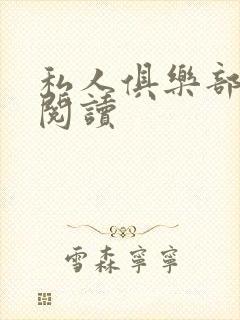 私人俱樂部
閱讀
雪森寧寧